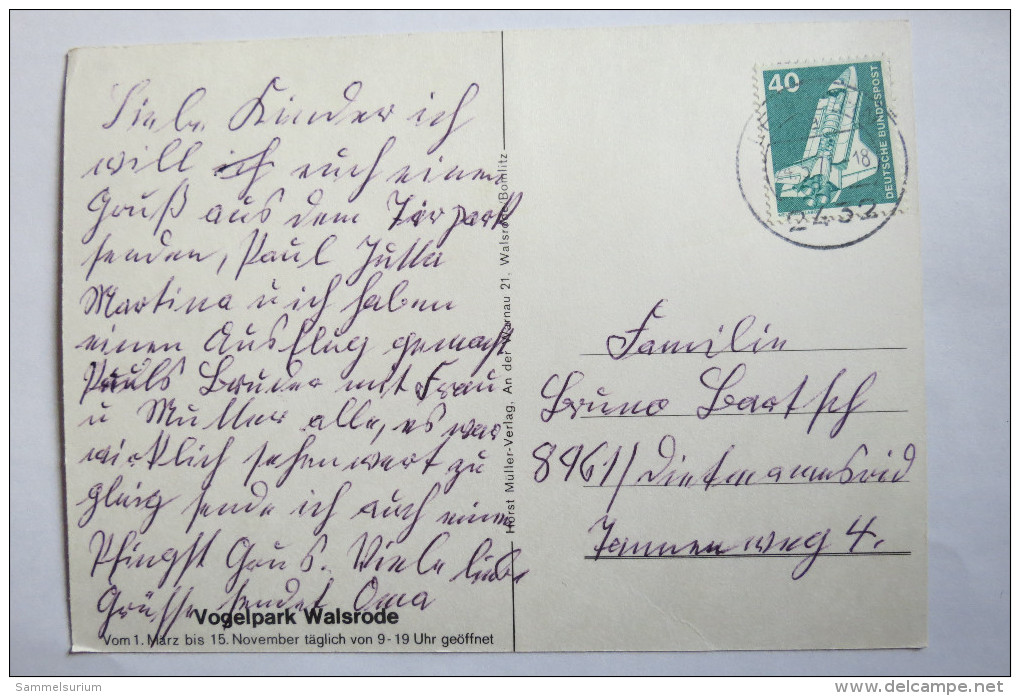 Liebe Kinder ich
will ich euch einen
Gruß aus dem Tirpark
senden, Paul Jutta
Martina u ich haben
einen Ausflug gemacht
Pauls Bruder mit Frau
u Mutter alle, es war
wirklich sehenwert zu
gleig sende ich auch einen
Pfingst Grus. Viele liebe
Grüsse sendet Oma
Vogelpark Walsrode
Vom 1. März bis 15. November täglich von 9-19 Uhr geöffnet
Horst Müller-Verlag, An der Warnau 21, Walsrode-Bomlitz
40
DEUTSCHE BUNDESPOST
18
2432
Familie
Bruno Bartsch
8961 / Dietmannsrid
Tannenweg 4.
Sammelsurium
delcampe.net